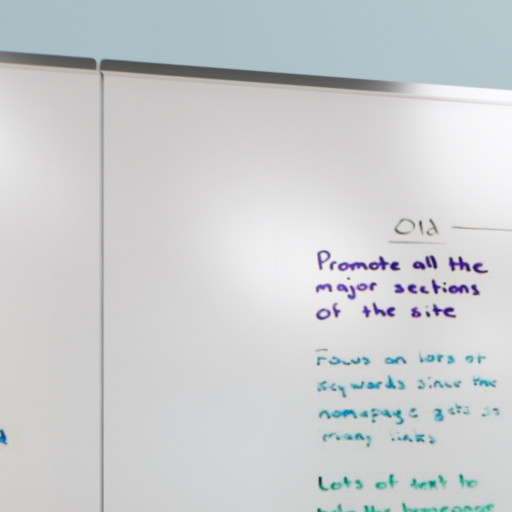 Old
Promote all the
major sections
of the site
Focus on lots of
keywords since the
homepage gets so
many links
Lots of text to
help the homepage